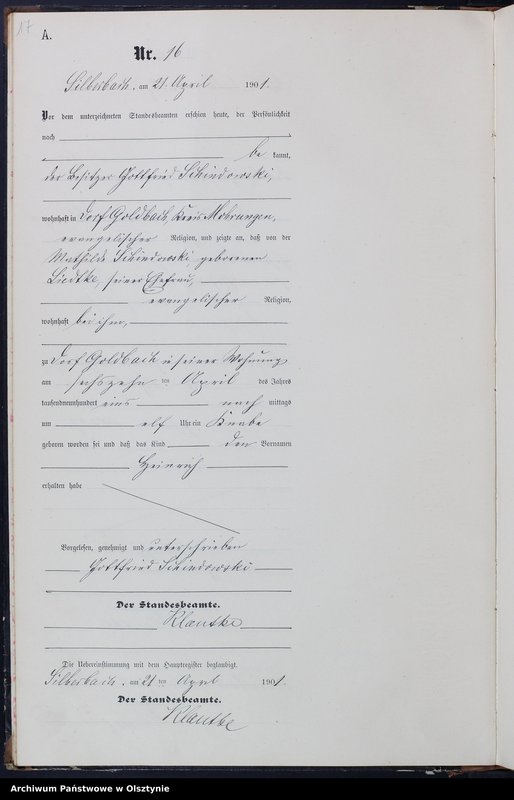 17
A.
Nr. 16
Silberbach, am 21. April 1901.
Vor dem unterzeichneten Standesbeamten erschien heute, der Persönlichkeit
nach
be kannt,
der Besitzer Gottfried Schindowski,
wohnhaft in Dorf Goldbach, Kreis Mohrungen,
evangelischer Religion, und zeigte an, daß von der
Mathilde Schindowski, geborenen
Liedtke, seiner Ehefrau,
evangelischer Religion,
wohnhaft bei ihm,
zu Dorf Goldbach in seiner Wohnung
am sechszehn ten April des Jahres
tausendneunhundert eins nach mittags
um elf Uhr ein Knabe
geboren worden sei und daß das Kind den Vornamen
Heinrich
erhalten habe
Vorgelesen, genehmigt und unterschrieben
Gottfried Schindowski
Der Standesbeamte.
Klautke
Die Uebereinstimmung mit dem Hauptregister beglaubigt.
Silberbach, am 21 ten April 1901.
Der Standesbeamte.
Klautke
Archiwum Państwowe w Olsztynie